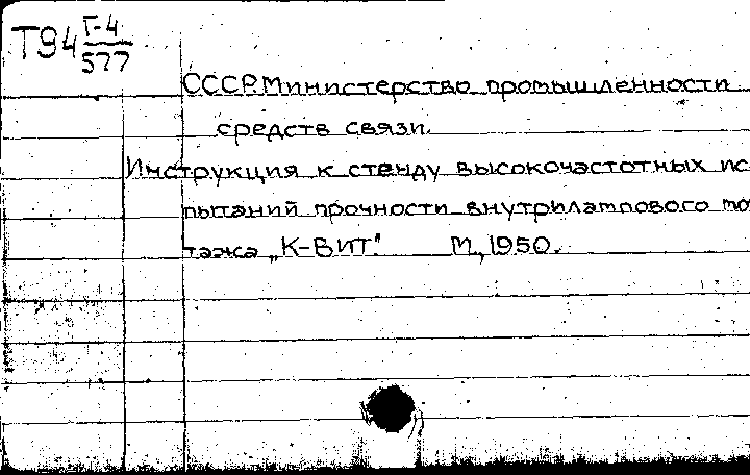 Т94 Г-4
577
СССР. Министерство промышленности
средств связи.
Инструкция к стенду высокочастотных ис
пытаний прочности внутрилампового мо
тажа „К-ВИТ". М., 1950.